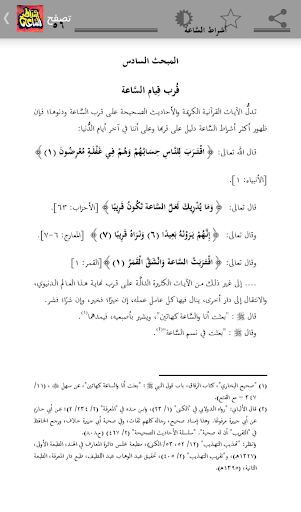 تصفح
٥٦
أشراط الساعة
المبحث السادس
قُرب قيام السَّاعة
تدلُّ الآيات القرآنية الكريمة والأحاديث الصحيحة على قرب السَّاعة ودنوها؛ فإن
ظهور أكثر أشراط السَّاعة دليل على قربها وعلى أننا في آخر أيام الدُّنيا:
قال الله تعالى: ﴿اقْتَرَبَ لِلنَّاسِ حِسَابُهُمْ وَهُمْ فِي غَفْلَةٍ مُعْرِضُونَ (١)﴾
[الأنبياء: ١].
وقال تعالى: ﴿وَمَا يُدْرِيكَ لَعَلَّ السَّاعَةَ تَكُونُ قَرِيبًا﴾ [الأحزاب: ٦٣].
وقال تعالى: ﴿إِنَّهُمْ يَرَوْنَهُ بَعِيدًا (٦) وَنَرَاهُ قَرِيبًا (٧)﴾ [المعارج: ٦-٧].
وقال تعالى: ﴿اقْتَرَبَتِ السَّاعَةُ وَانْشَقَّ الْقَمَرُ (١)﴾ [القمر: ١]
.... إلى غير ذلك من الآيات الكثيرة الدالَّة على قرب نهاية هذا العالم الدنيوي،
والانتقال إلى دار أخرى، ينال فيها كل عامل عمله، إن خيرًا؛ فخير، وإن شرًا؛ فشر.
قال ﷺ: "بعثت أنا والسَّاعة كهاتين"، ويشير بأصبعيه، فيمدهما(١).
وقال ﷺ: "بعثت في نسم السَّاعة"(٢).
(١) "صحيح البخاري"، كتاب الرقاق، باب قول النبي ﷺ: "بعثت أنا والساعة كهاتين"، عن سهل، (١١/
٣٤٧ - مع الفتح).
(٢) قال الألباني: "رواه الدولابي في "الكنى" (١/ ٢٣)، وابن منده في "المعرفة" (٢/ ٢٣٤/ ٢)؛ عن أبي حازم
عن أبي جبيرة مرفوعًا. وهذا إسناد صحيح، رجاله كلهم ثقات، وفي صحبة أبي جبيرة خلاف، ورجح الحافظ
في "التقريب" أن له صحبة". "سلسلة الأحاديث الصحيحة" (٢/ ٤٦٧)
وانظر: "تهذيب التهذيب" (١٢/ ٥٢، ٥٣/ الكنى)، مطبعة مجلس دائرة المعارف في الهند، الطبعة الأولى،
(١٣٢٧هـ)، و"تقريب التهذيب" (٢/ ٤٠٥)، تحقيق عبد الوهاب عبد اللطيف، طبع دار المعرفة، الطبعة
الثانية، (١٣٩٥هـ).